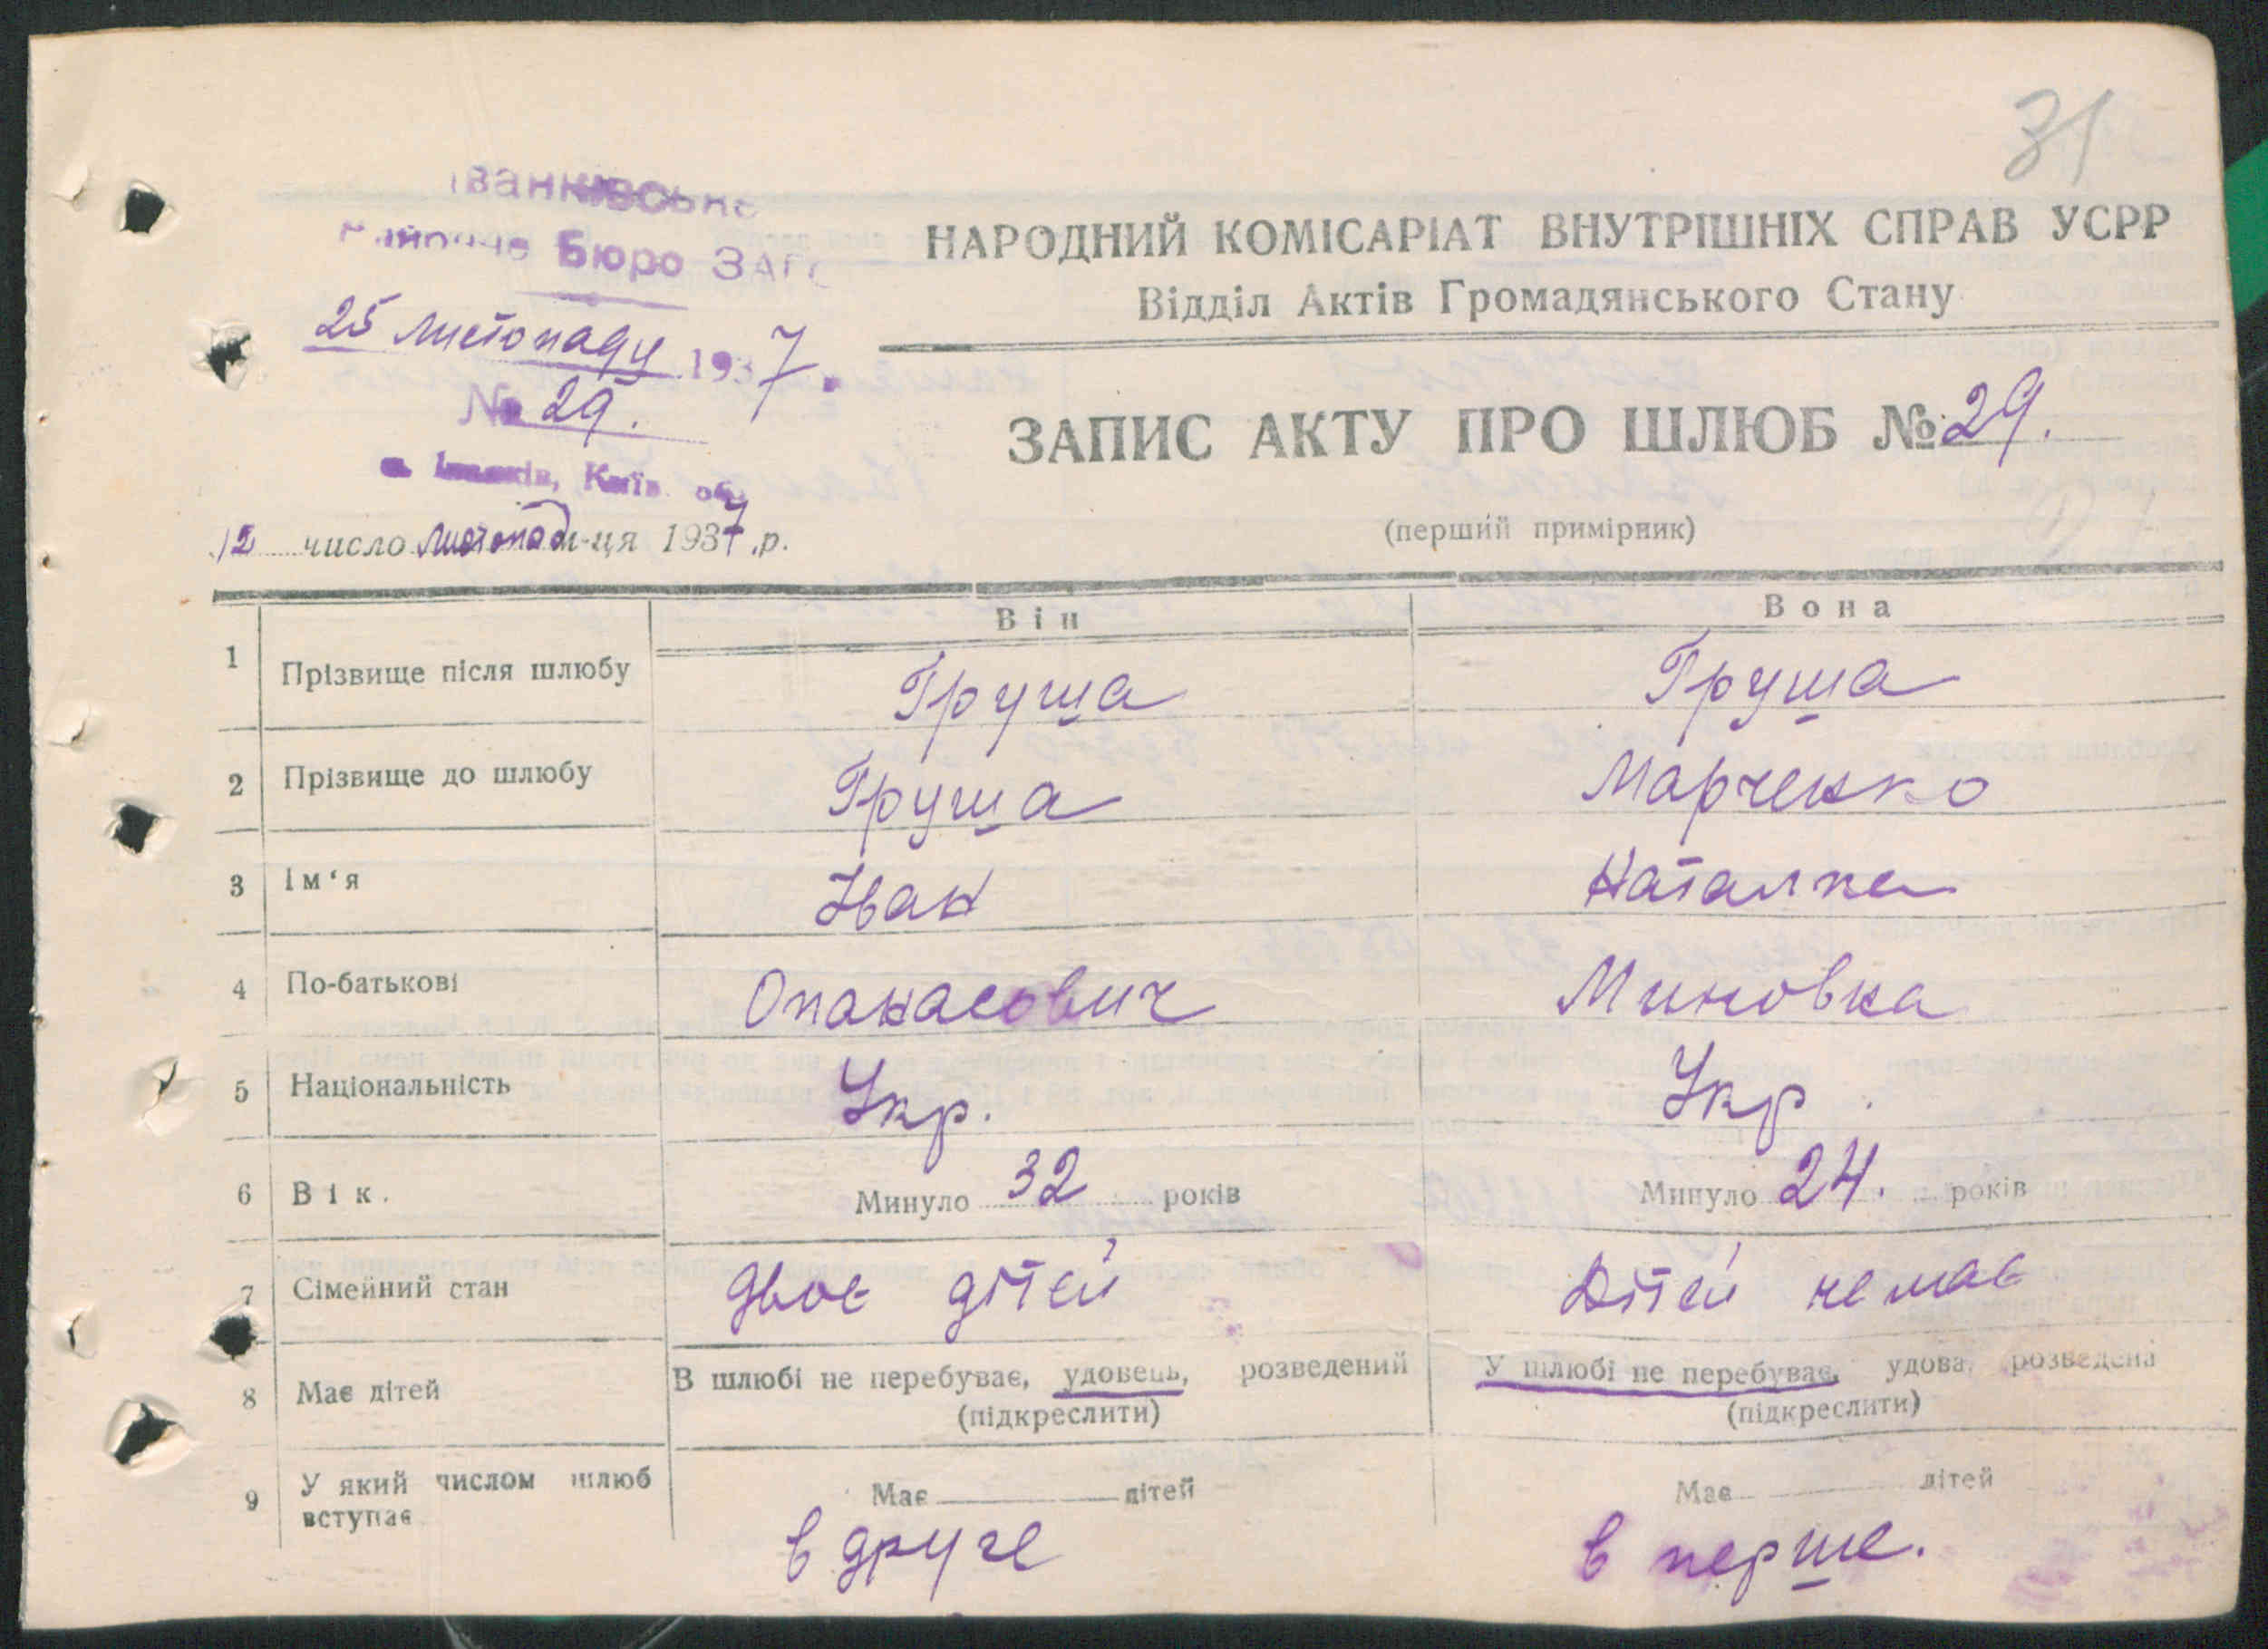 31
Іванківське
Районне Бюро ЗАГС
25 листопаду 1937.
№ 29.
м. Іванків, Київ. об.
НАРОДНИЙ КОМІСАРІАТ ВНУТРІШНІХ СПРАВ УСРР
Відділ Актів Громадянського Стану
ЗАПИС АКТУ ПРО ШЛЮБ № 29.
(перший примірник)
12 число листопад м-ця 1937 .р.
Він Вона
1 Прізвище після шлюбу Груша Груша
2 Прізвище до шлюбу Груша Марченко
3 Ім‘я Іван Наталка
4 По-батькові Опанасович Миновна
5 Національність Укр. Укр.
6 Вік. Минуло 32 років Минуло 24. років
7 Сімейний стан двоє дітей Дітей немає
8 Має дітей В шлюбі не перебуває, удовець, розведений У шлюбі не перебуває, удова, розведена
(підкреслити) (підкреслити)
9 У який числом шлюб вступає Має дітей Має дітей
в друге в перше.